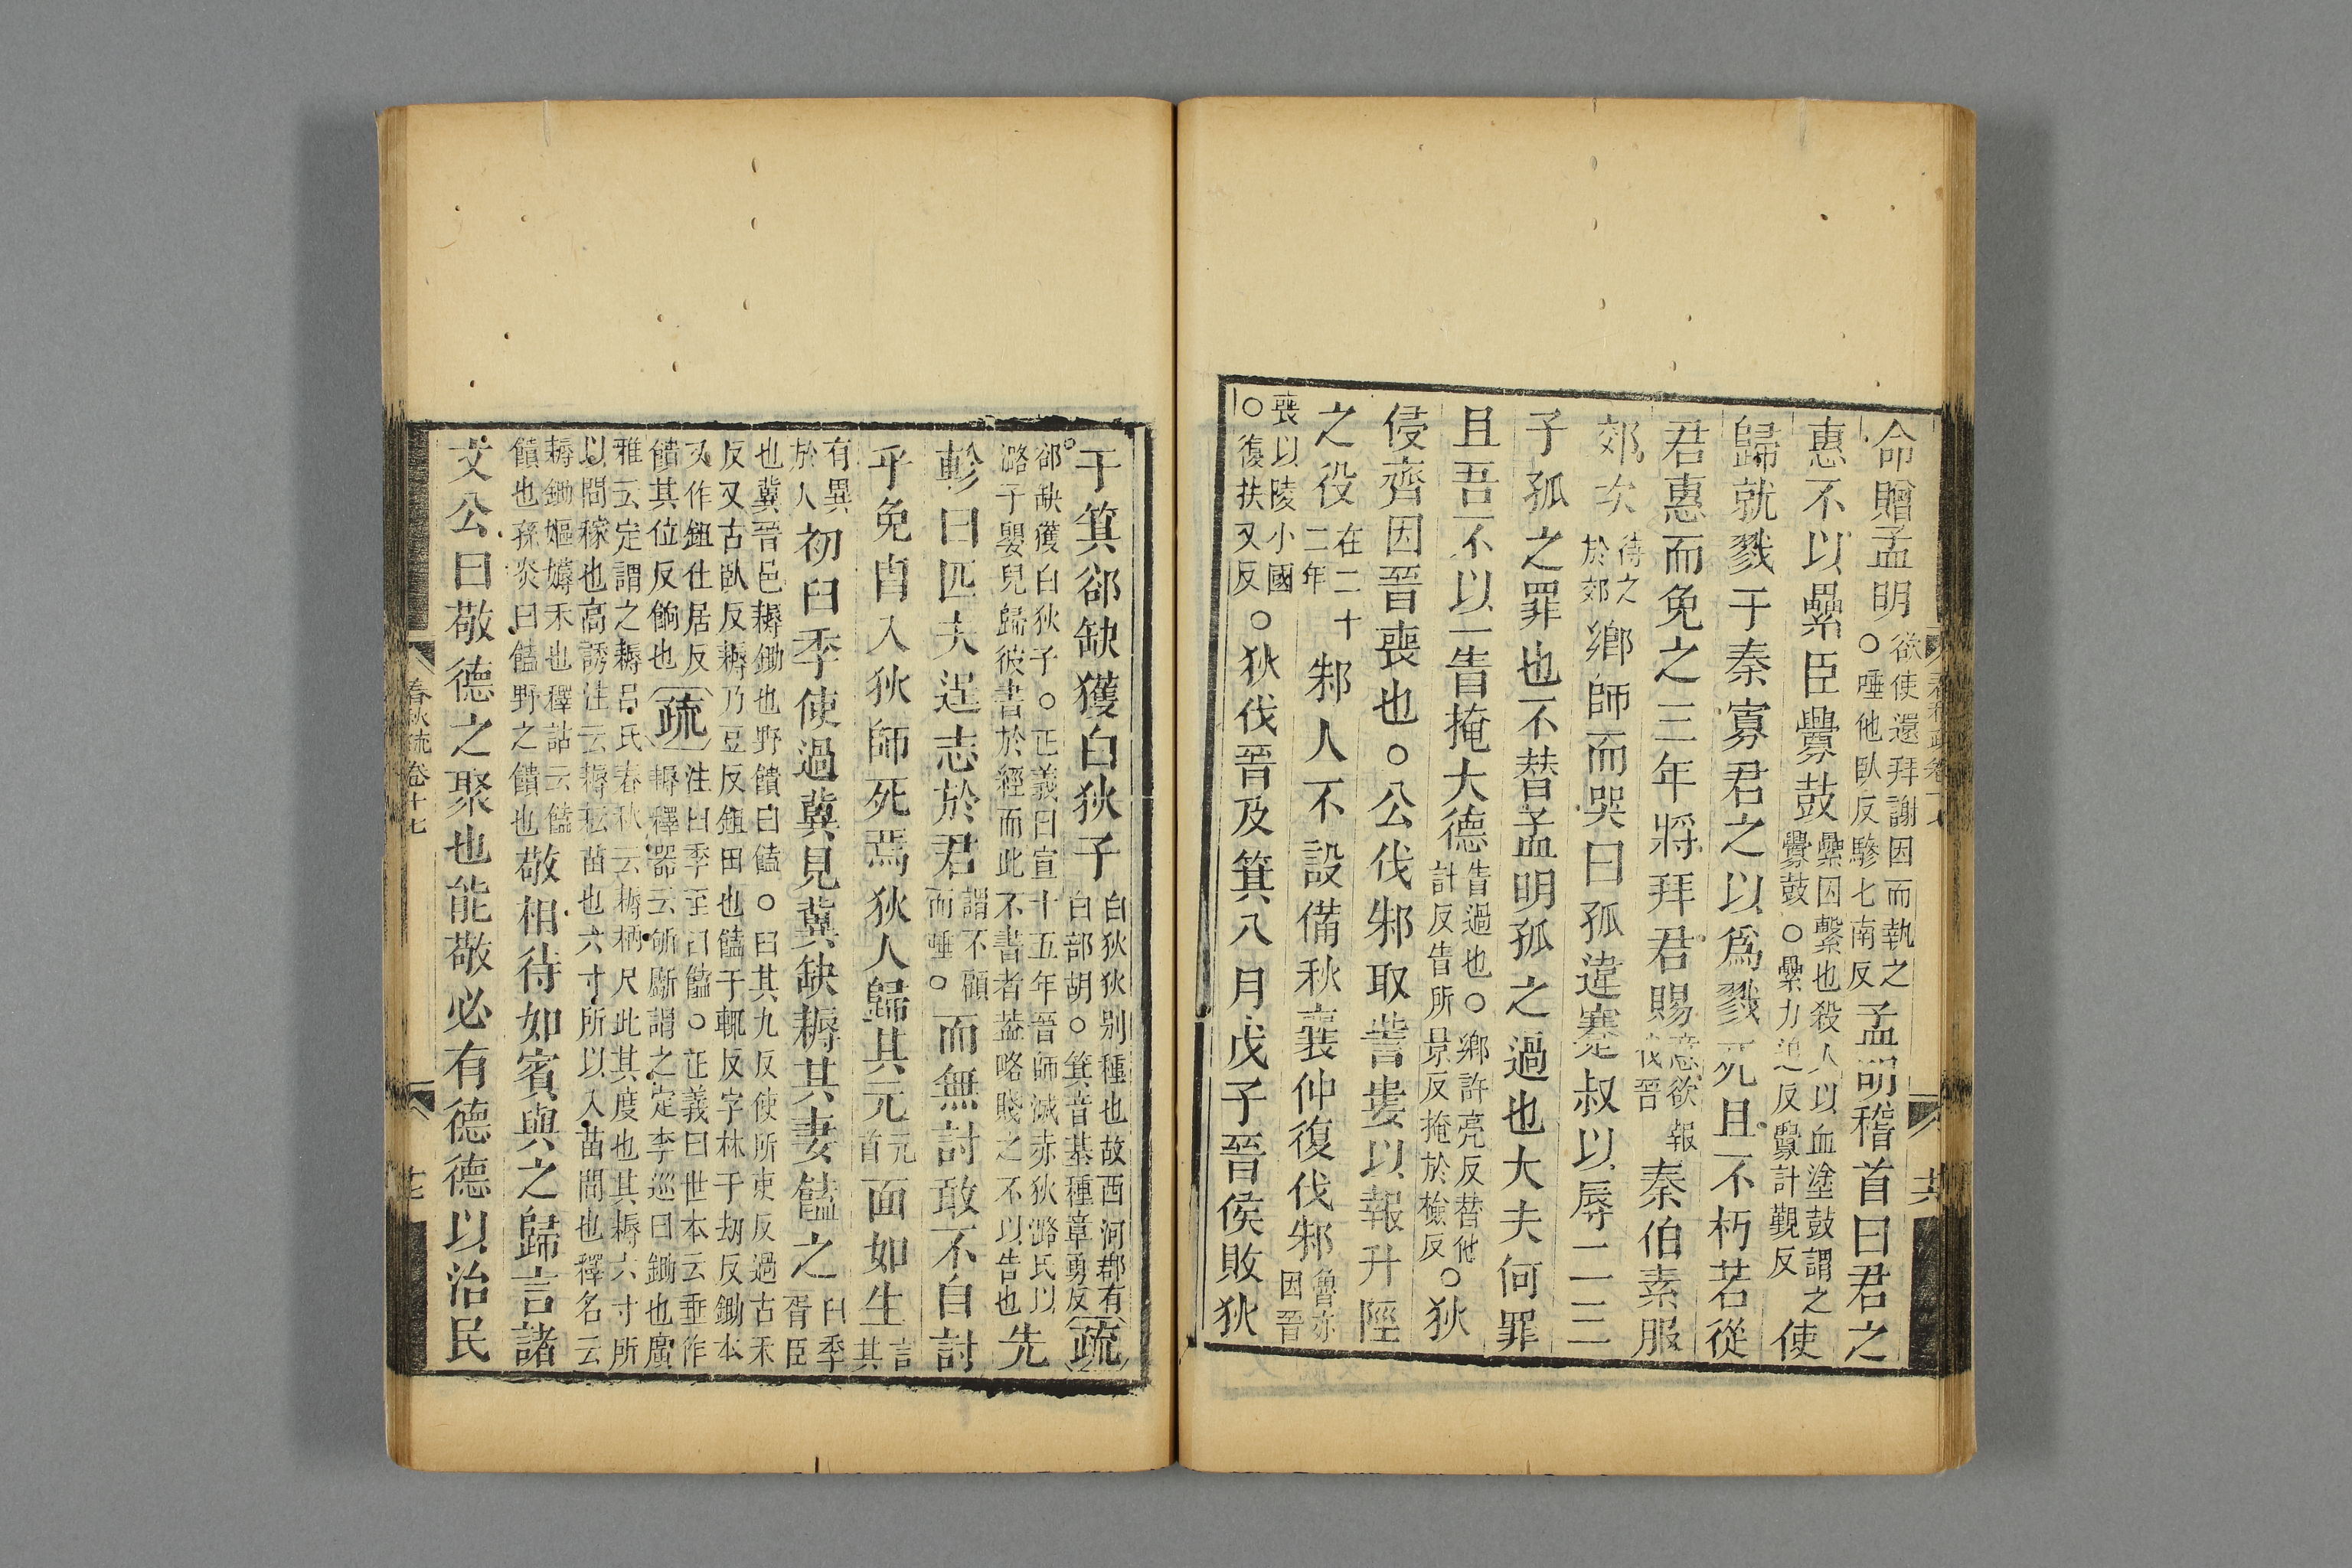 命贈孟明欲使還拜謝因而執之○唾他臥反驂七南反孟明稽首曰君之
惠不以纍臣釁鼓纍囚繫也殺人以血塗鼓謂之釁鼓○纍力追反釁許覲反使
歸就戮于秦寡君之以爲戮死且不朽若從
君惠而免之三年將拜君賜意欲報伐晉秦伯素服
郊次待之於郊鄉師而哭曰孤違蹇叔以辱二三
子孤之罪也不替孟明孤之過也大夫何罪
且吾不以一眚掩大德眚過也○鄉許亮反替他計反眚所景反掩於檢反○狄
侵齊因晉喪也○公伐邾取訾婁以報升陘
之役在二十二年邾人不設備秋襄仲復伐邾魯亦因晉
喪以陵小國○復扶又反○狄伐晉及箕八月戊子晉侯敗狄
于箕郤缺獲白狄子白狄狄别種也故西河郡有白部胡○箕音基種章勇反疏
郤缺獲白狄子○正義曰宣十五年晉師滅赤狄潞氏以潞子嬰兒歸彼書於經而此不書者蓋略賤之不以告也先
軫曰匹夫逞志於君謂不顧而唾○而無討敢不自討
乎免胄入狄師死焉狄人歸其元元首面如生言其
有異於人初臼季使過冀見冀缺耨其妻饁之臼季胥臣
也冀晉邑耨鋤也野饋曰饁○臼其九反使所吏反過古禾反又古臥反耨乃豆反鉏田也饁于輒反字林于劫反鋤本
又作鉏仕居反饋其位反餉也疏注臼季至曰饁○正義曰世本云垂作耨釋器云斫斸謂之定李巡曰鋤也廣
雅云定謂之耨呂氏春秋云耨柄尺此其度也其耨六寸所以間稼也高誘注云耨耘苗也六寸所以入苗間也釋名云
耨鋤嫗耨禾也釋詁云饁饋也孫炎曰饁野之饋也敬相待如賓與之歸言諸
文公曰敬德之聚也能敬必有德德以治民
春秋疏卷十七